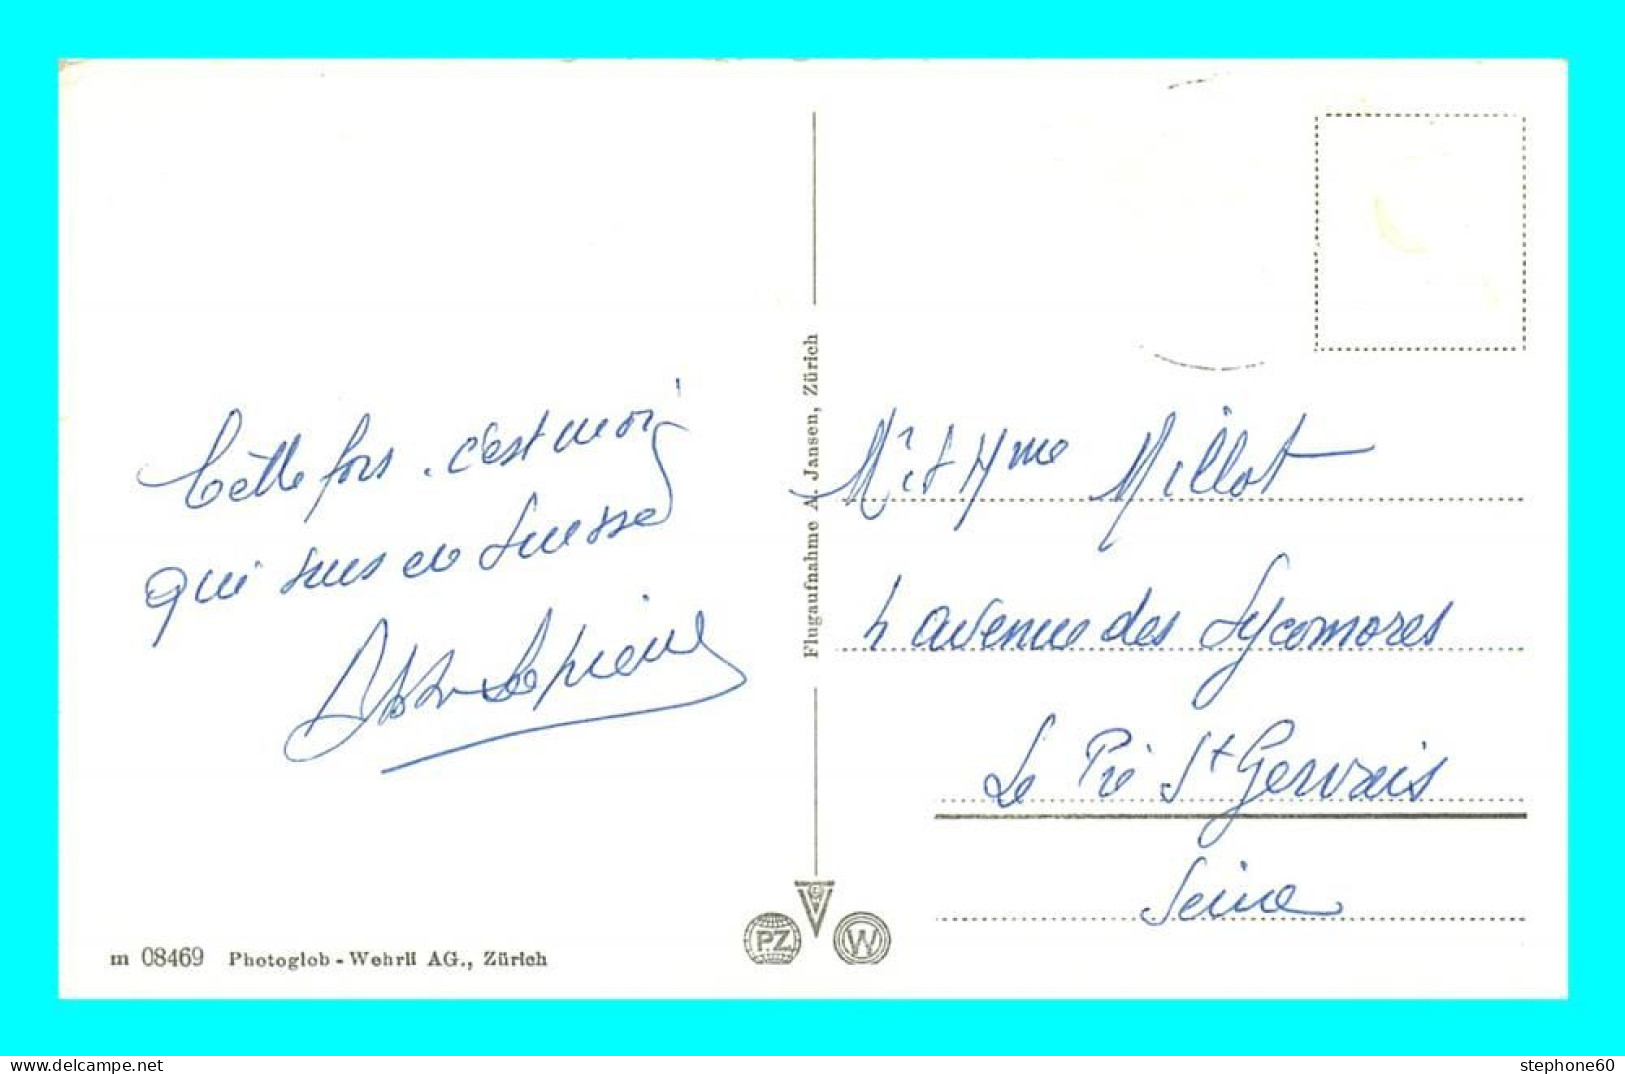 Cette fois, c'est moi
qui suis en Suisse
Mr et Mme Millot
4 avenue des Sycomores
Le Pré St Gervais
Seine
Flugaufnahme A. Jansen, Zürich
m 08469 Photoglob - Wehrli AG., Zürich
P.Z.
W
stephone60